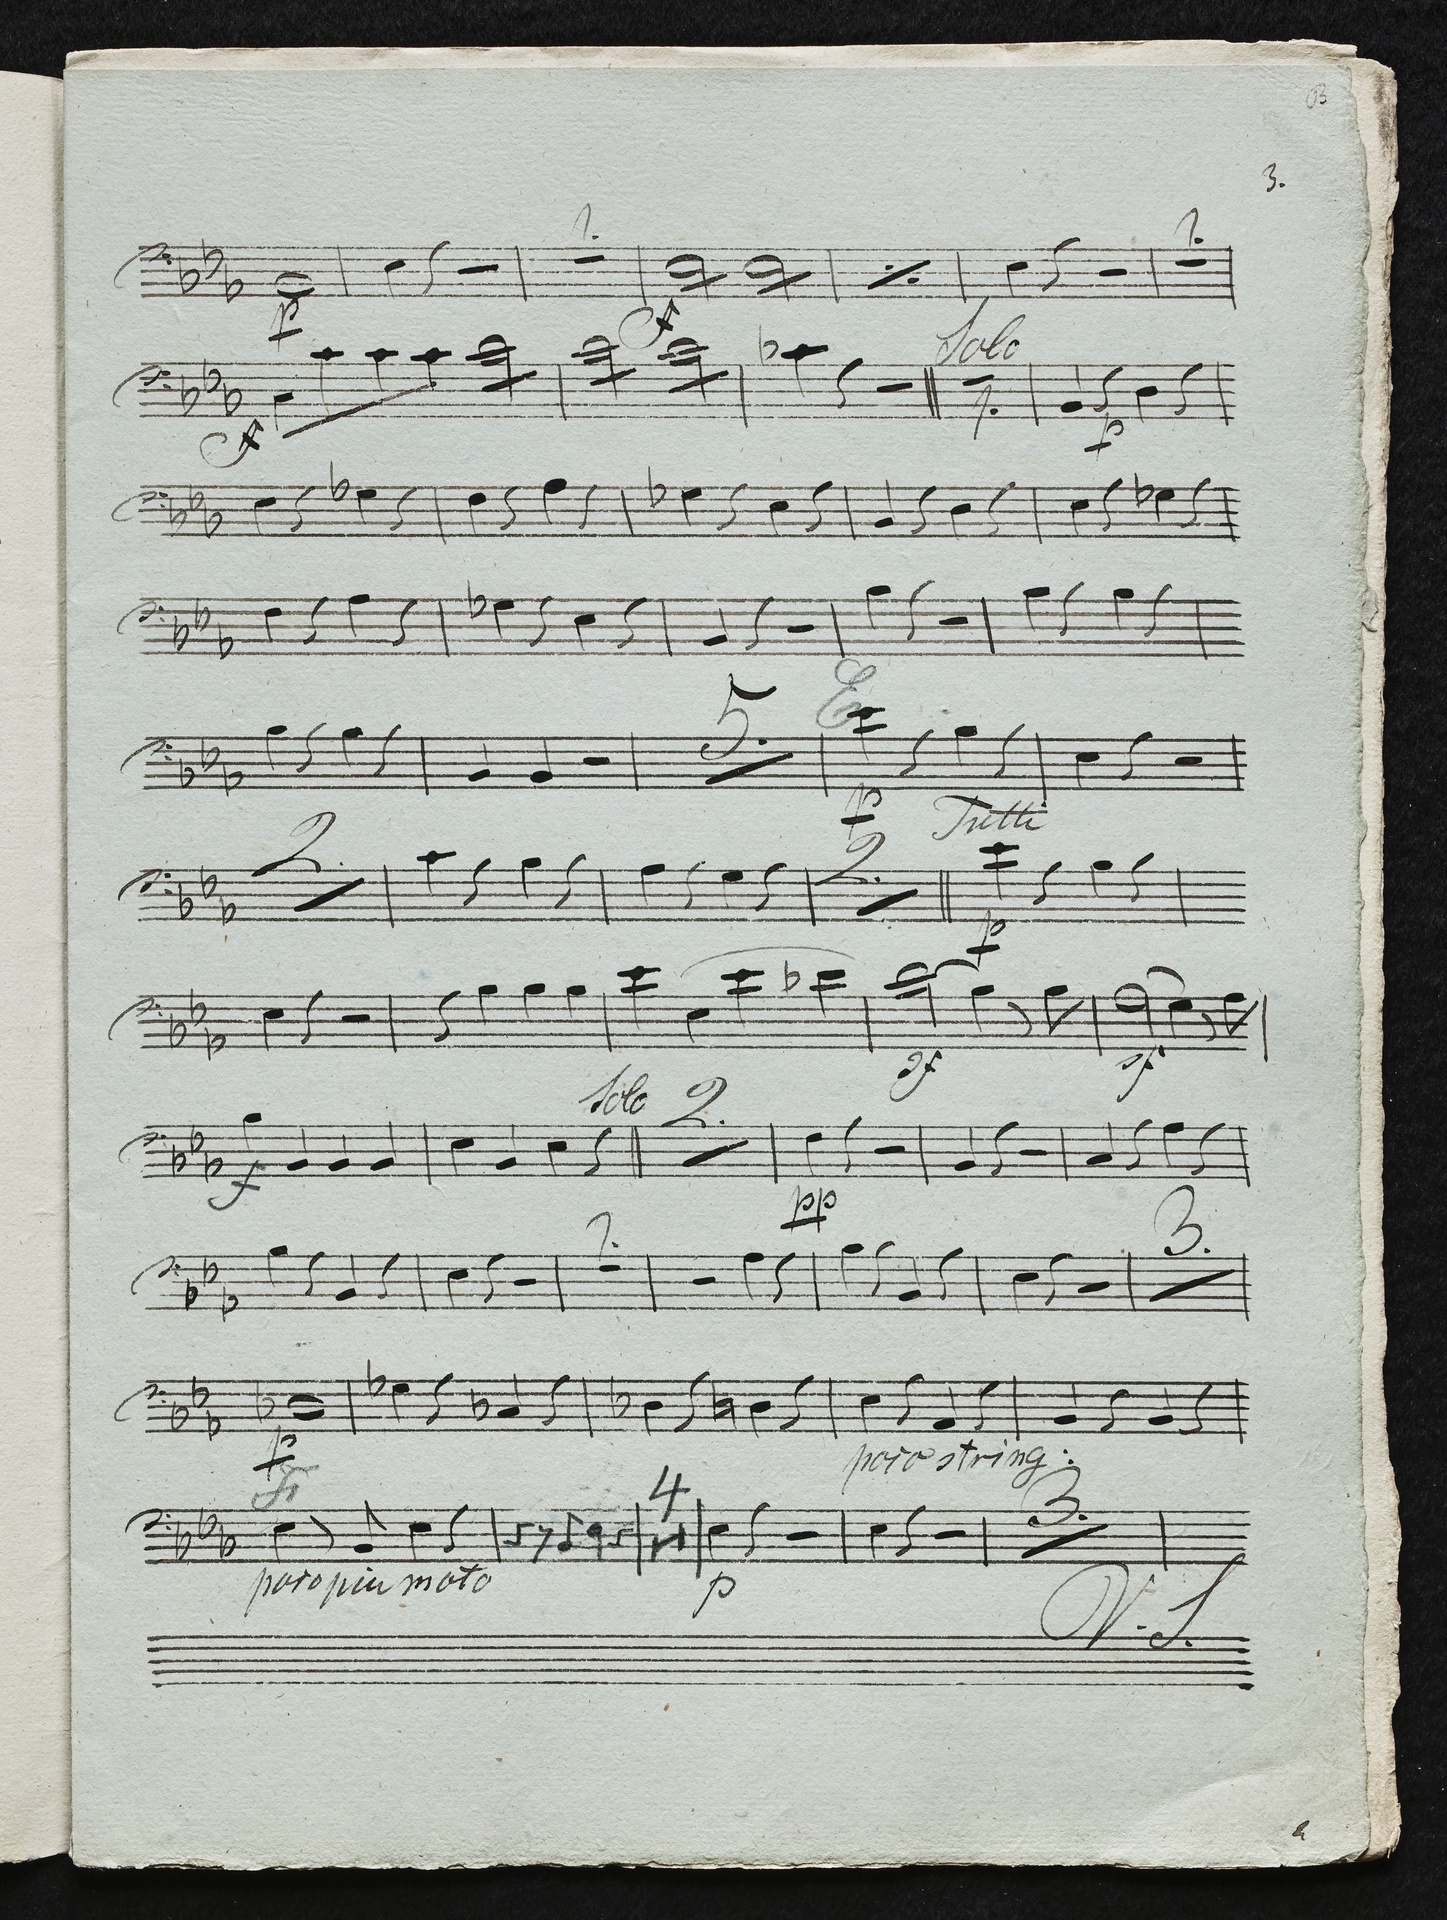 B
3.
1.
1.
p
ff
Solo
1.
ff
p
5.
E
p
Tutti
2.
2.
p
sf
sf
Solo
2.
f
pp
1.
3.
p
poco string:
F
4
3.
poco piu moto
p
V. S.